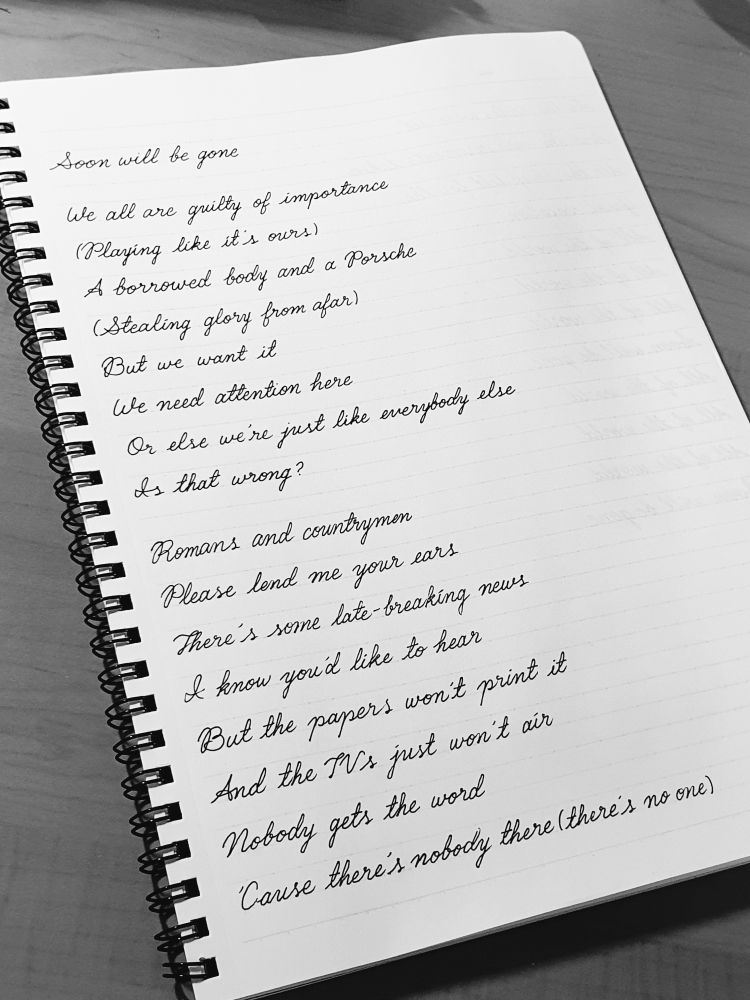 Soon will be gone
We all are guilty of importance
(Playing like it's ours)
A borrowed body and a Porsche
(Stealing glory from afar)
But we want it
We need attention here
Or else we're just like everybody else
Is that wrong?
Romans and countrymen
Please lend me your ears
There's some late-breaking news
I know you'd like to hear
But the papers won't print it
And the TVs just won't air
Nobody gets the word
'Cause there's nobody there (there's no one)